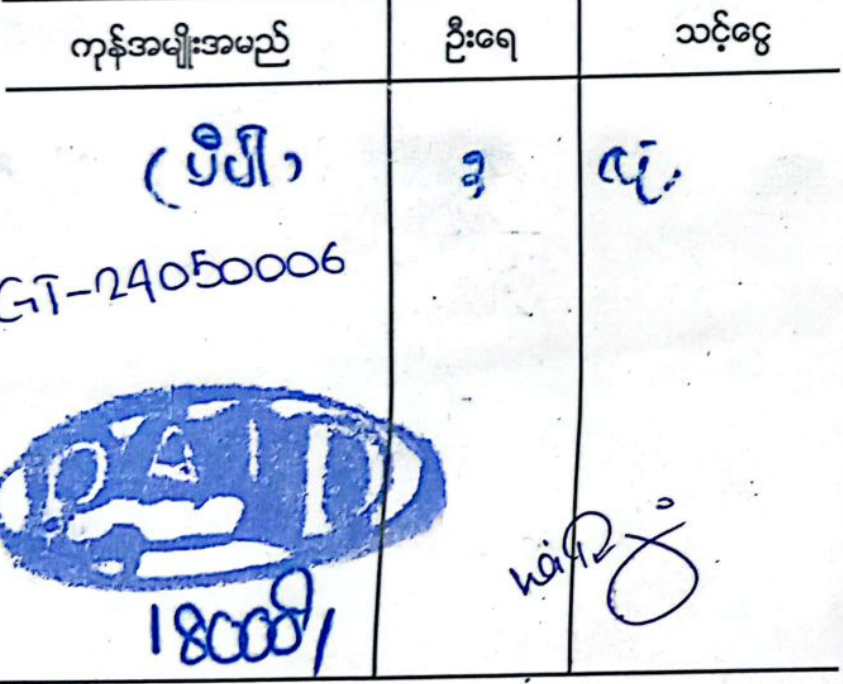 ကုန်အမျိုးအမည် ဦးရေ သင့်ငွေ
(ပီပါ) ၃
GT-24050006
PAID
18000/